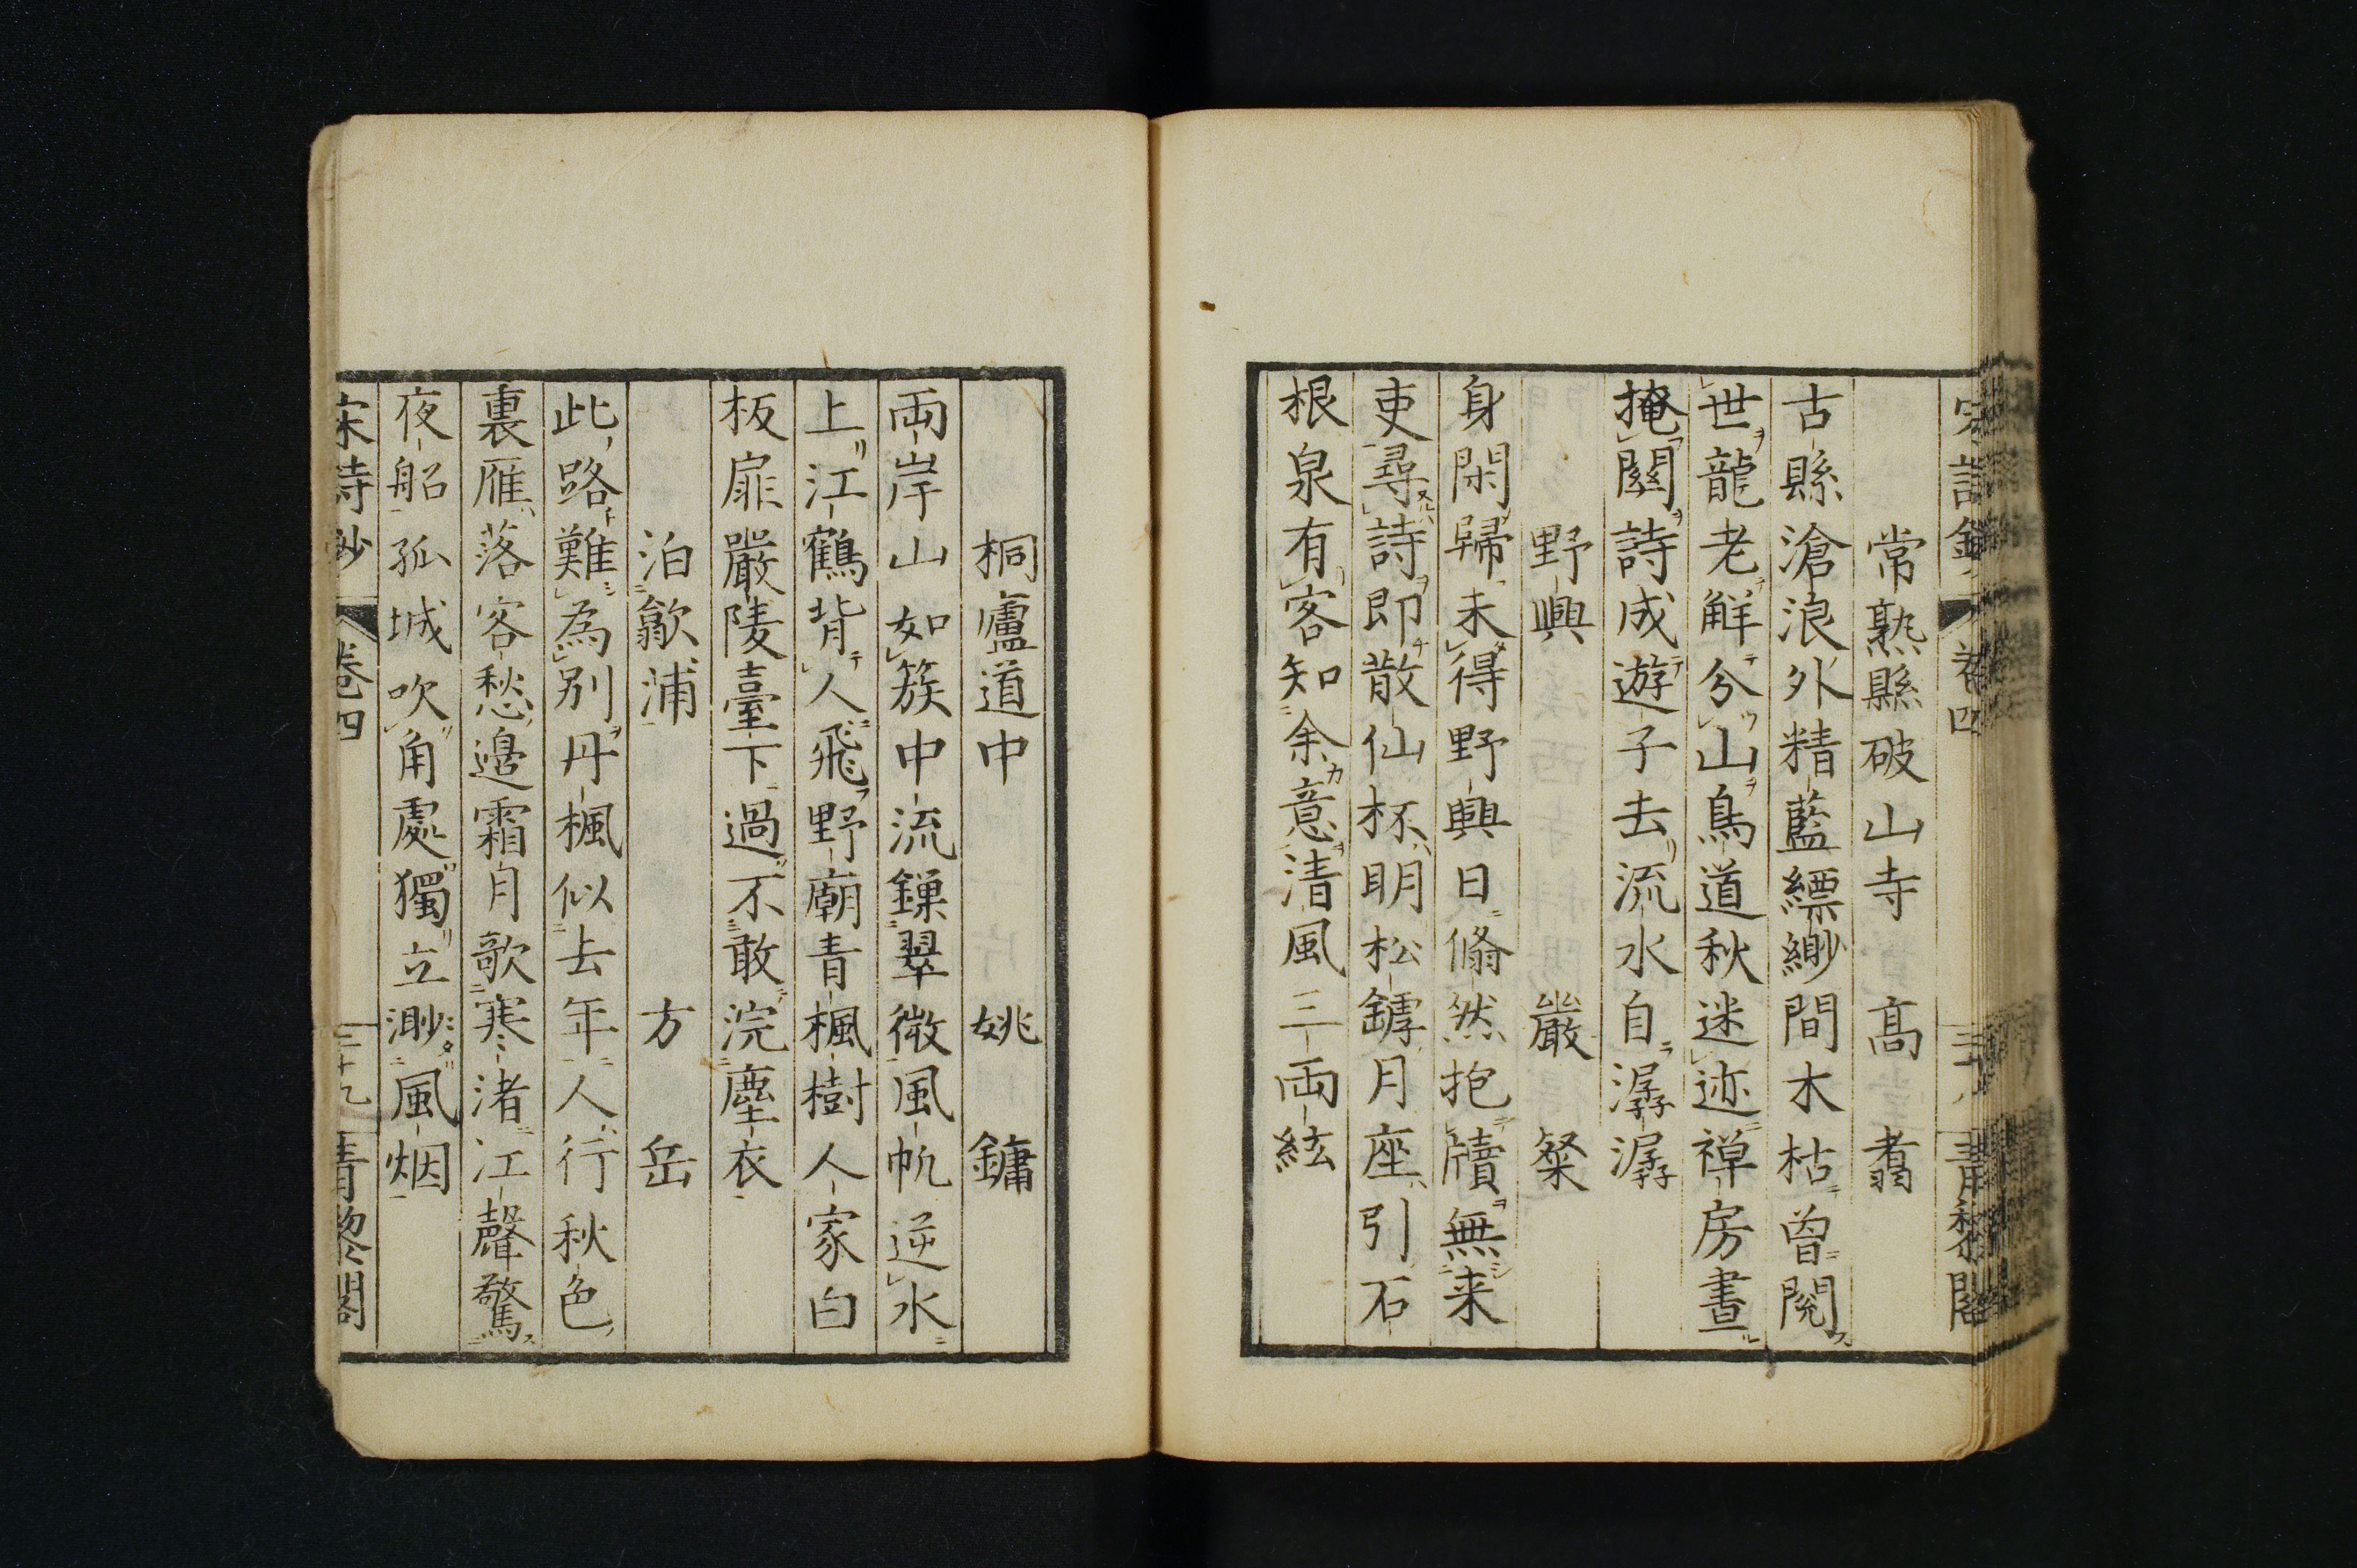 宋詩鈔 卷四 三十八 青黎閣
常熟縣破山寺 高翥
古縣滄浪外精藍縹緲間木枯曾閱
世龍老解分山鳥道秋迷迹禅房晝
掩關詩成遊子去流水自潺潺
野興 嚴粲
身閑歸未得野興日翛然抱牘無来
吏尋詩即散仙杯明松罅月座引石
根泉有客知余意清風三両絃
桐廬道中 姚鏞
両岸山如簇中流鏁翠微風帆逆水
上江鶴背人飛野廟青楓樹人家白
板扉嚴陵臺下過不敢浣塵衣
泊歙浦 方岳
此路難為別丹楓似去年人行秋色
裏雁落客愁邉霜月歌寒渚江聲驚
夜船孤城吹角處獨立渺風烟
宋詩鈔 卷四 三十九 青黎閣